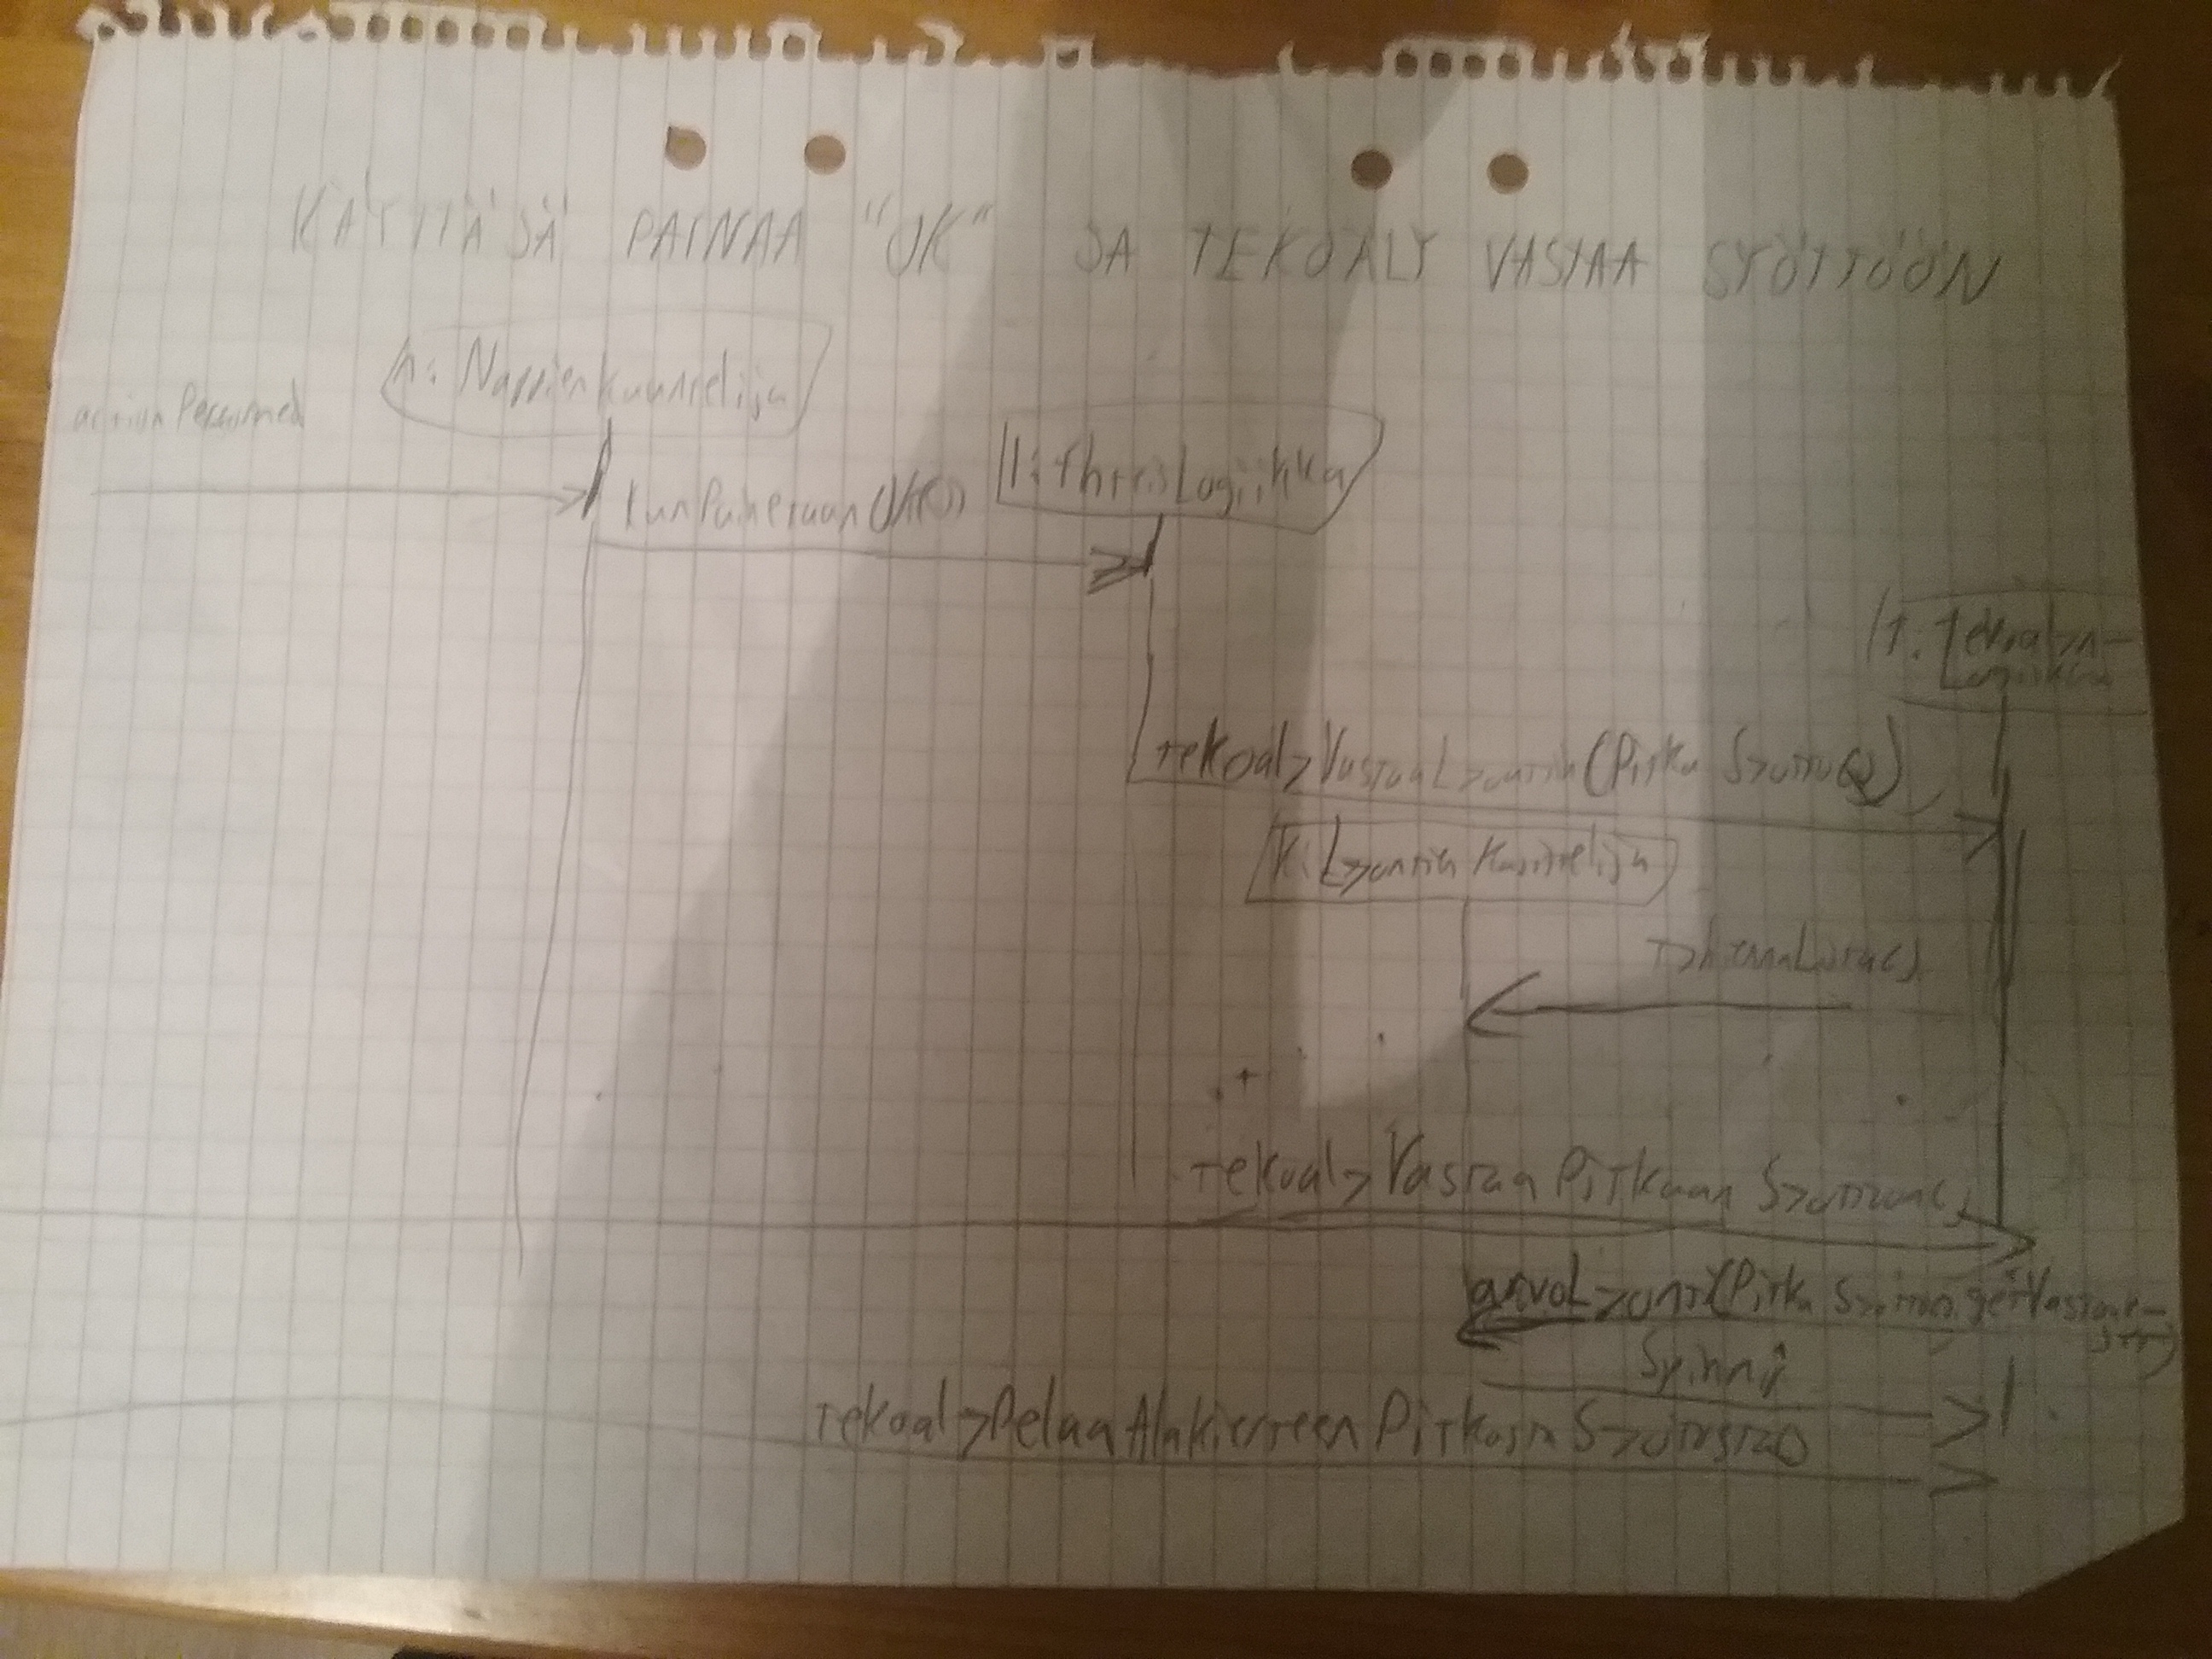 KÄYTTÄJÄ PAINAA "OK" JA TEKOÄLY VASTAA SYÖTTÖÖN
n: Nappienkuuntelija
actionPerformed
l: YhteisLogiikka
kunPainetaanOK()
t: Tekoalyn-
Logiikka
tekoalyVastaaLyontiin(PitkaSyotto())
k: LyontienKasittelija
tyhjennaLista()
tekoalyVastaaPitkaanSyottoon()
arvoLyonti(PitkaSyotto.getVastauk-
set)
Spinni
tekoalyPelaaAlakierteenPitkastaSyotosta()